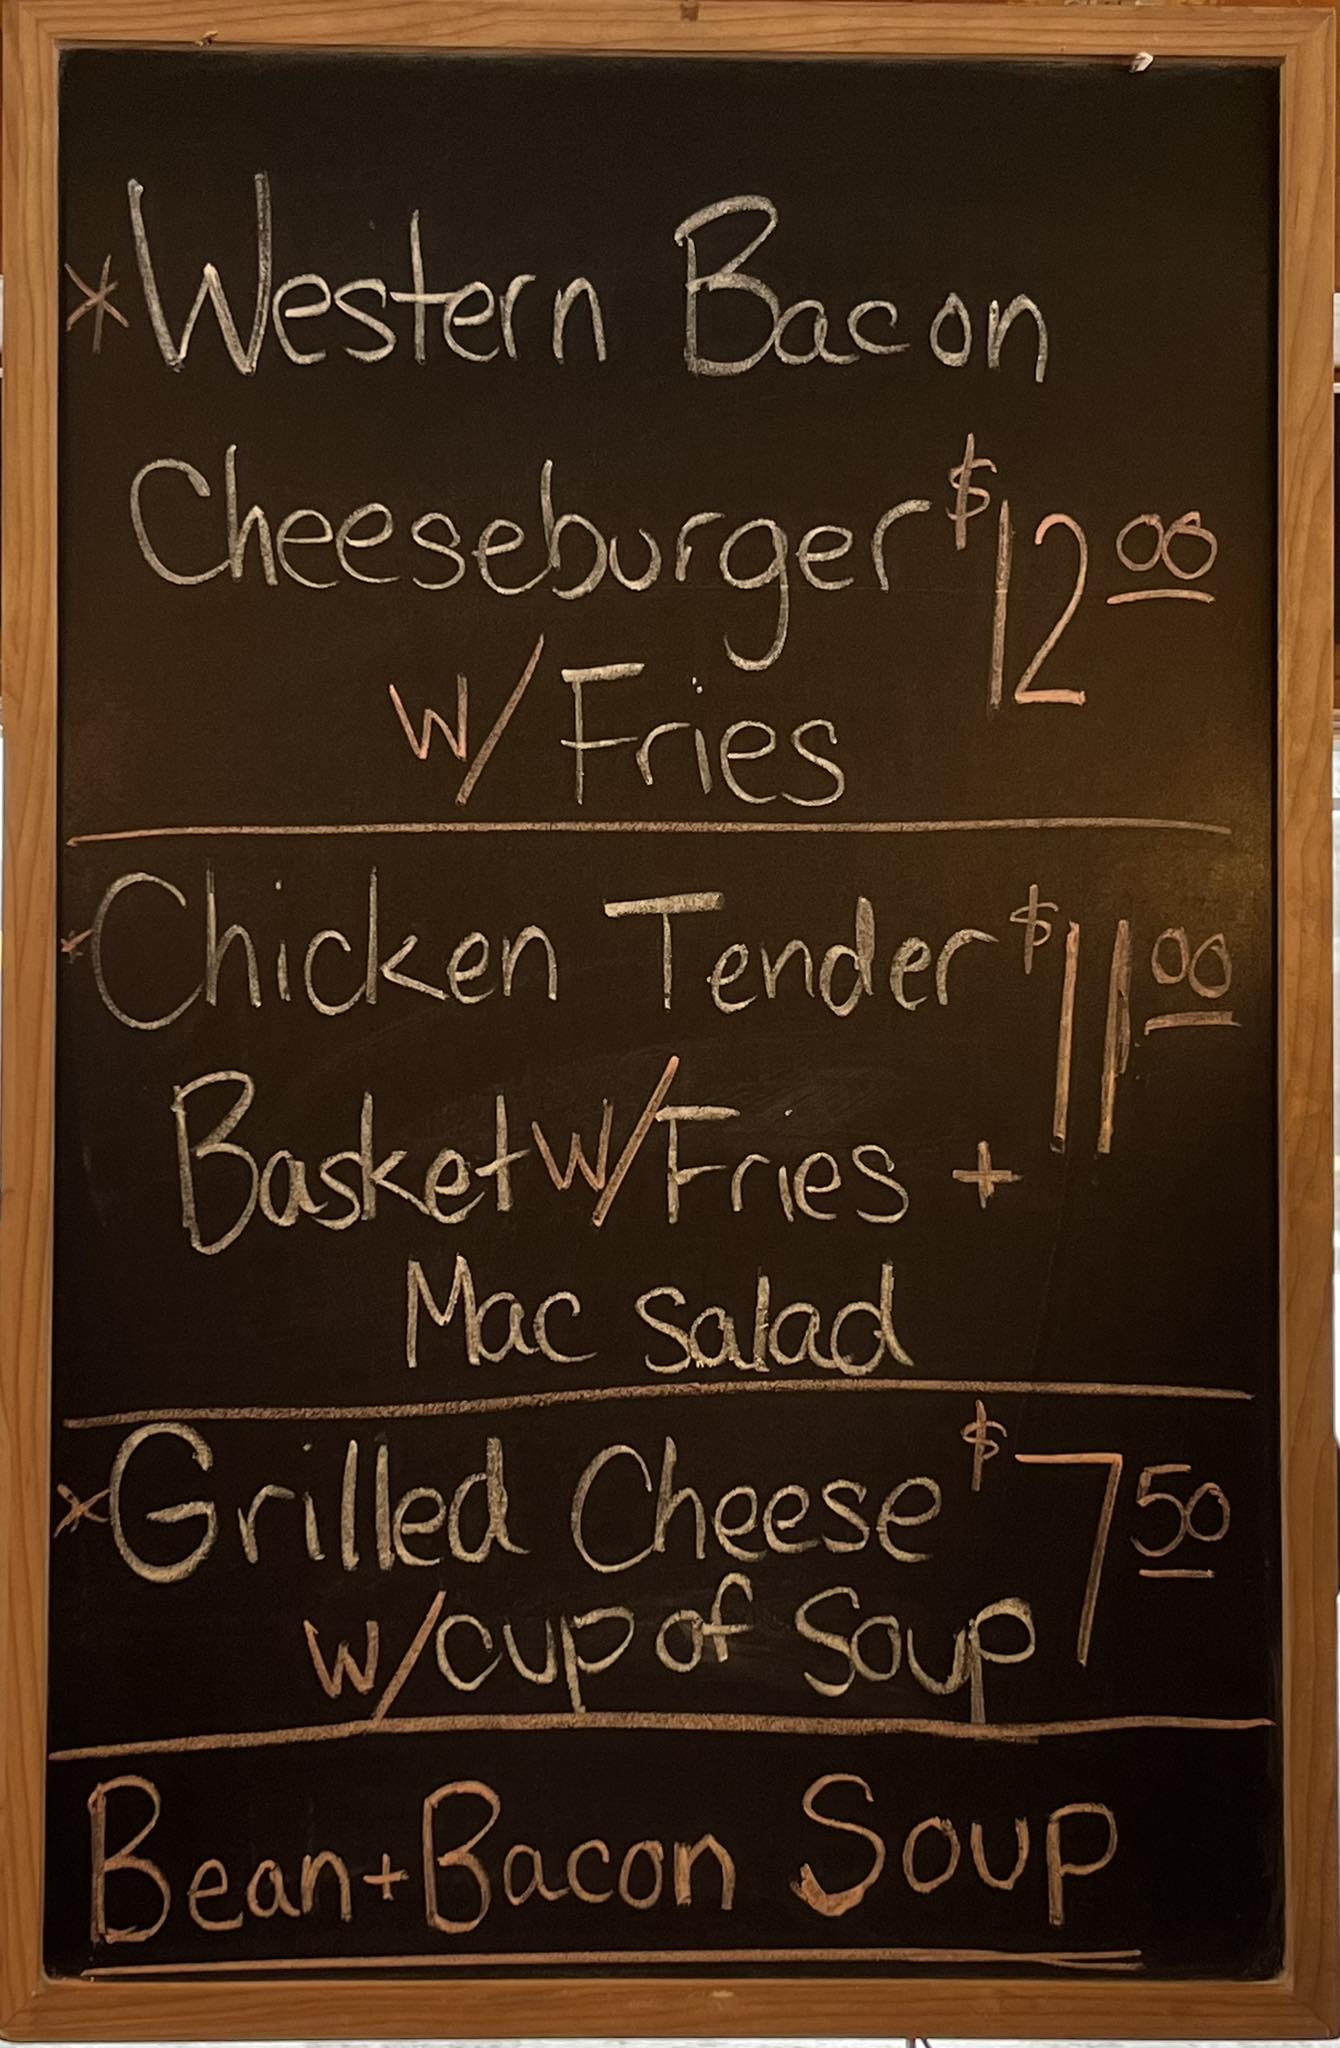 * Western Bacon
Cheeseburger $12 00
w/ Fries
* Chicken Tender $11 00
Basket w/ Fries +
Mac Salad
* Grilled Cheese $7 50
w/ cup of Soup
Bean + Bacon Soup